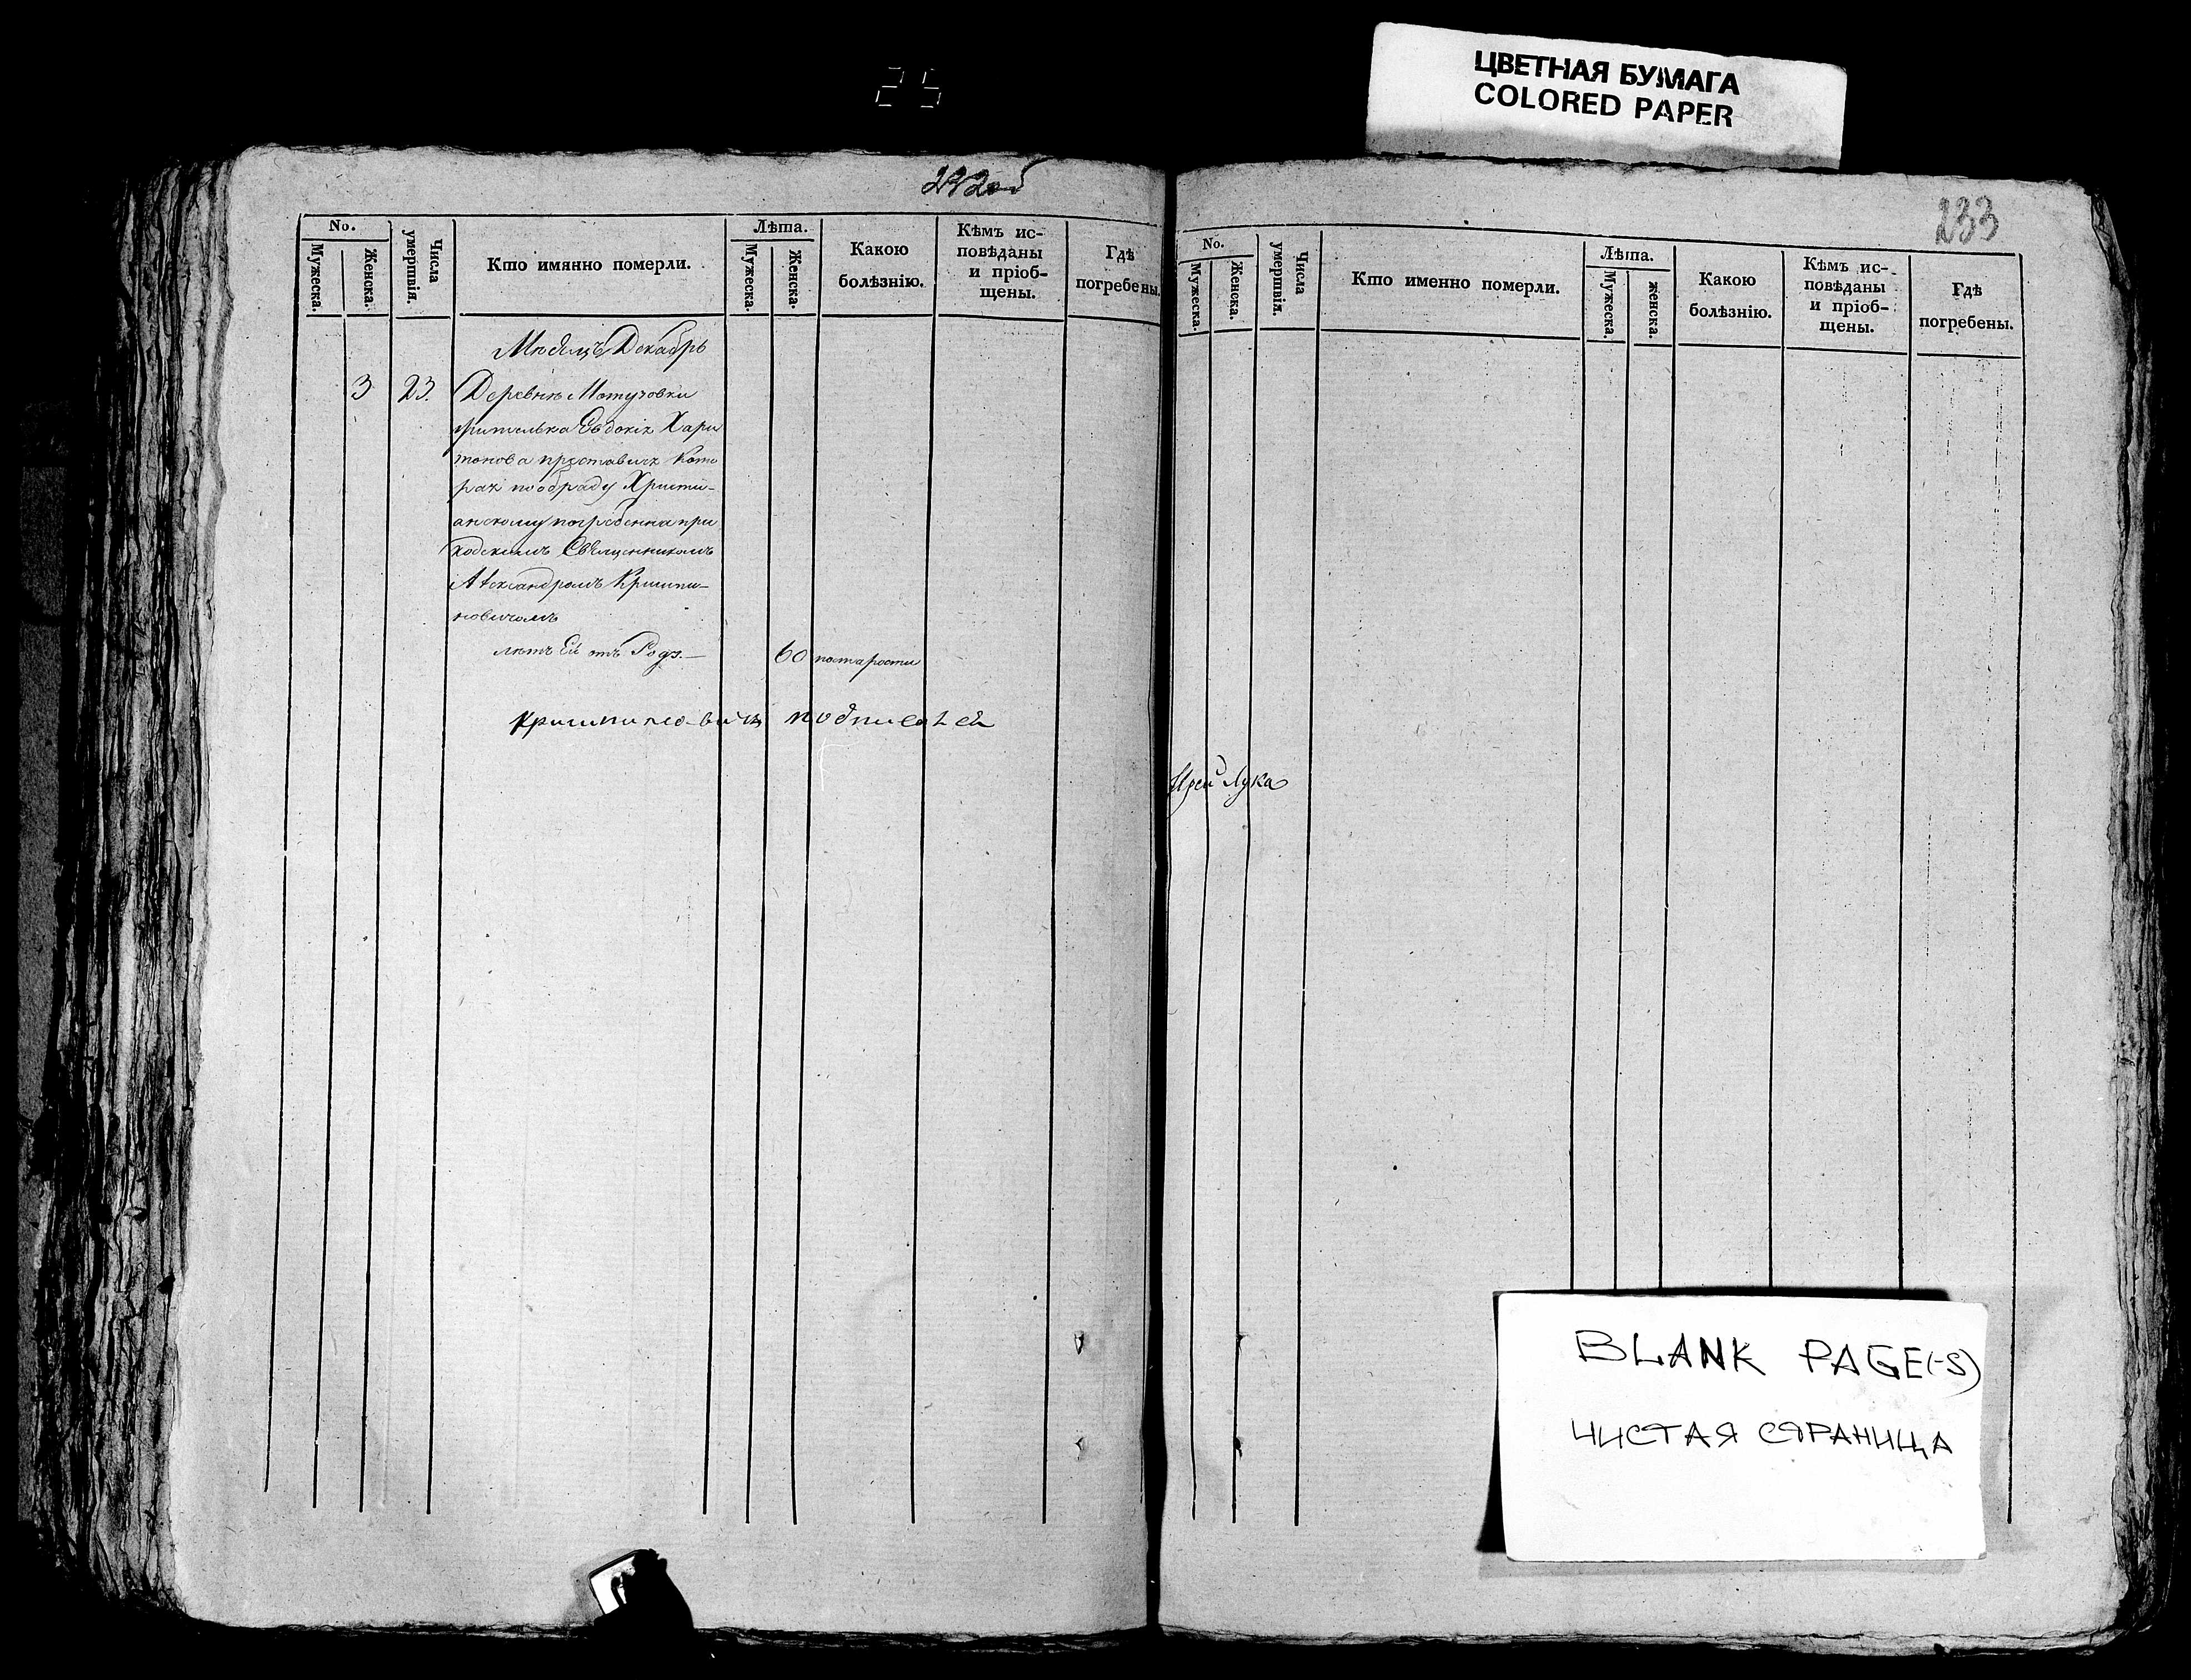 ЦВЕТНАЯ БУМАГА
COLORED PAPER
25
232об
No.
Мужеска.
Женска.
Числа умертвія.
Кто имянно померли.
Лѣта.
Мужеска.
Женска.
Какою болѣзнію.
Кѣмъ исповѣданы и пріобщены.
Гдѣ погребены.
Мѣсяцъ Декабрь
3 23. Деревни Мотузовки
жителька Евдокія Хари
тонова преставися кото
рая пообраду Христи-
анскому погребенна при
ходскимъ Священникомъ
Александромъ Кришпи-
новичомъ
лѣтъ Ей отъ Родз.— 60 постарости
Кришпиновичъ подписался
233
No.
Мужеска.
Женска.
Числа умертвія.
Кто именно померли.
Лѣта.
Мужеска.
женска.
Какою болѣзнію.
Кѣмъ исповѣданы и пріобщены.
Гдѣ погребены.
Іерей Лука
BLANK PAGE(-S)
ЧИСТАЯ СТРАНИЦА